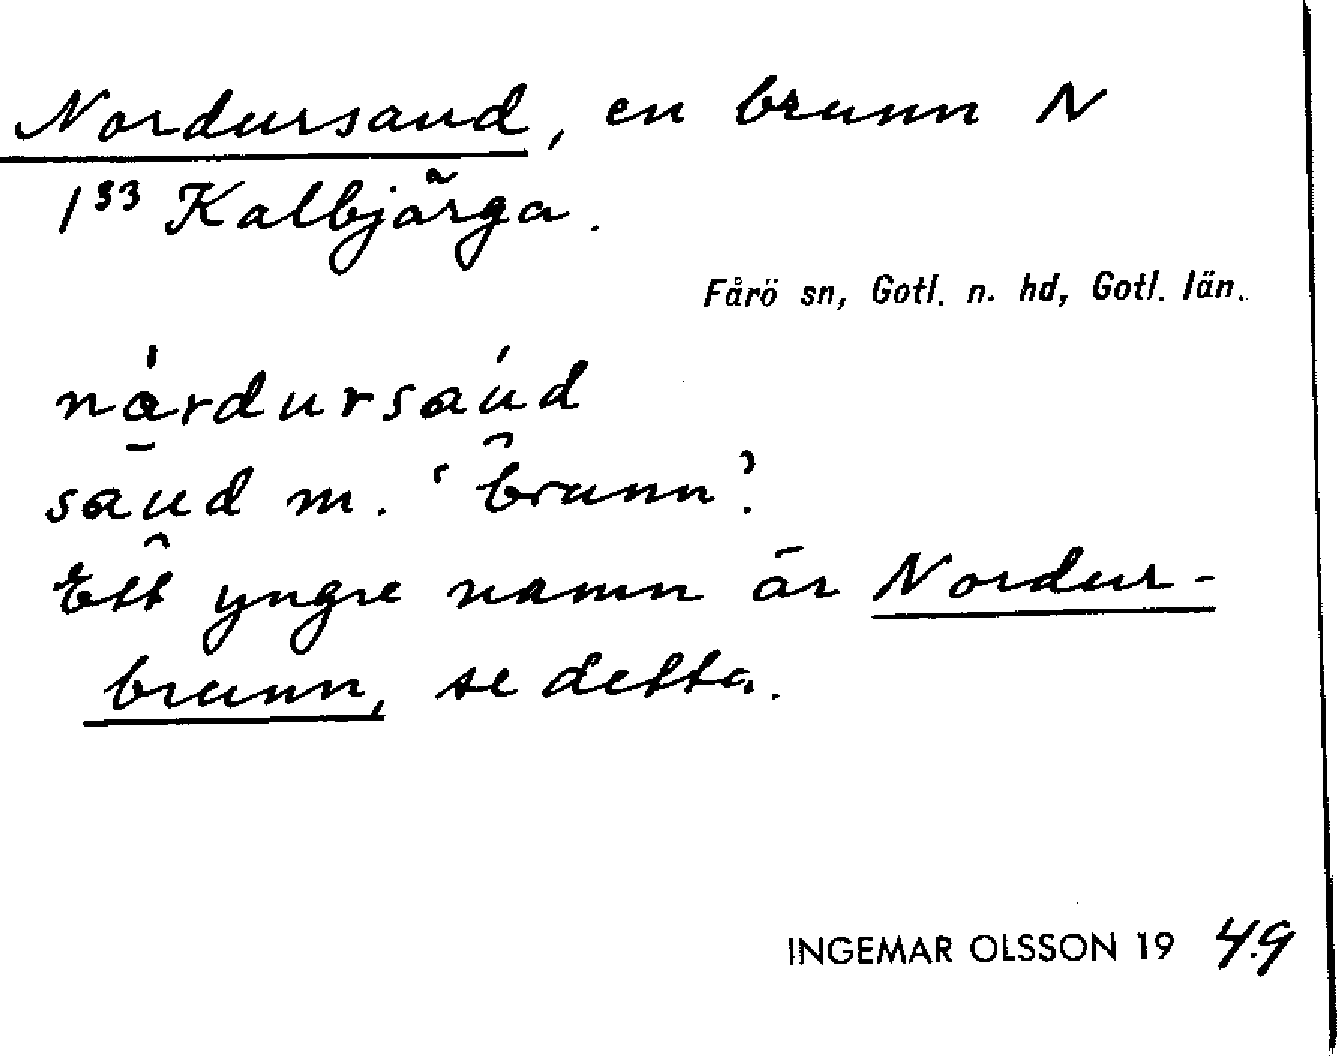 Nordursaud, en brunn N
1³³ Kalbjärga.
Fårö sn, Gotl. n. hd, Gotl. län.
nårdursaúd
saud m. 'brunn'.
Ett yngre namn är Nordur-
brunn, se detta.
INGEMAR OLSSON 19 49